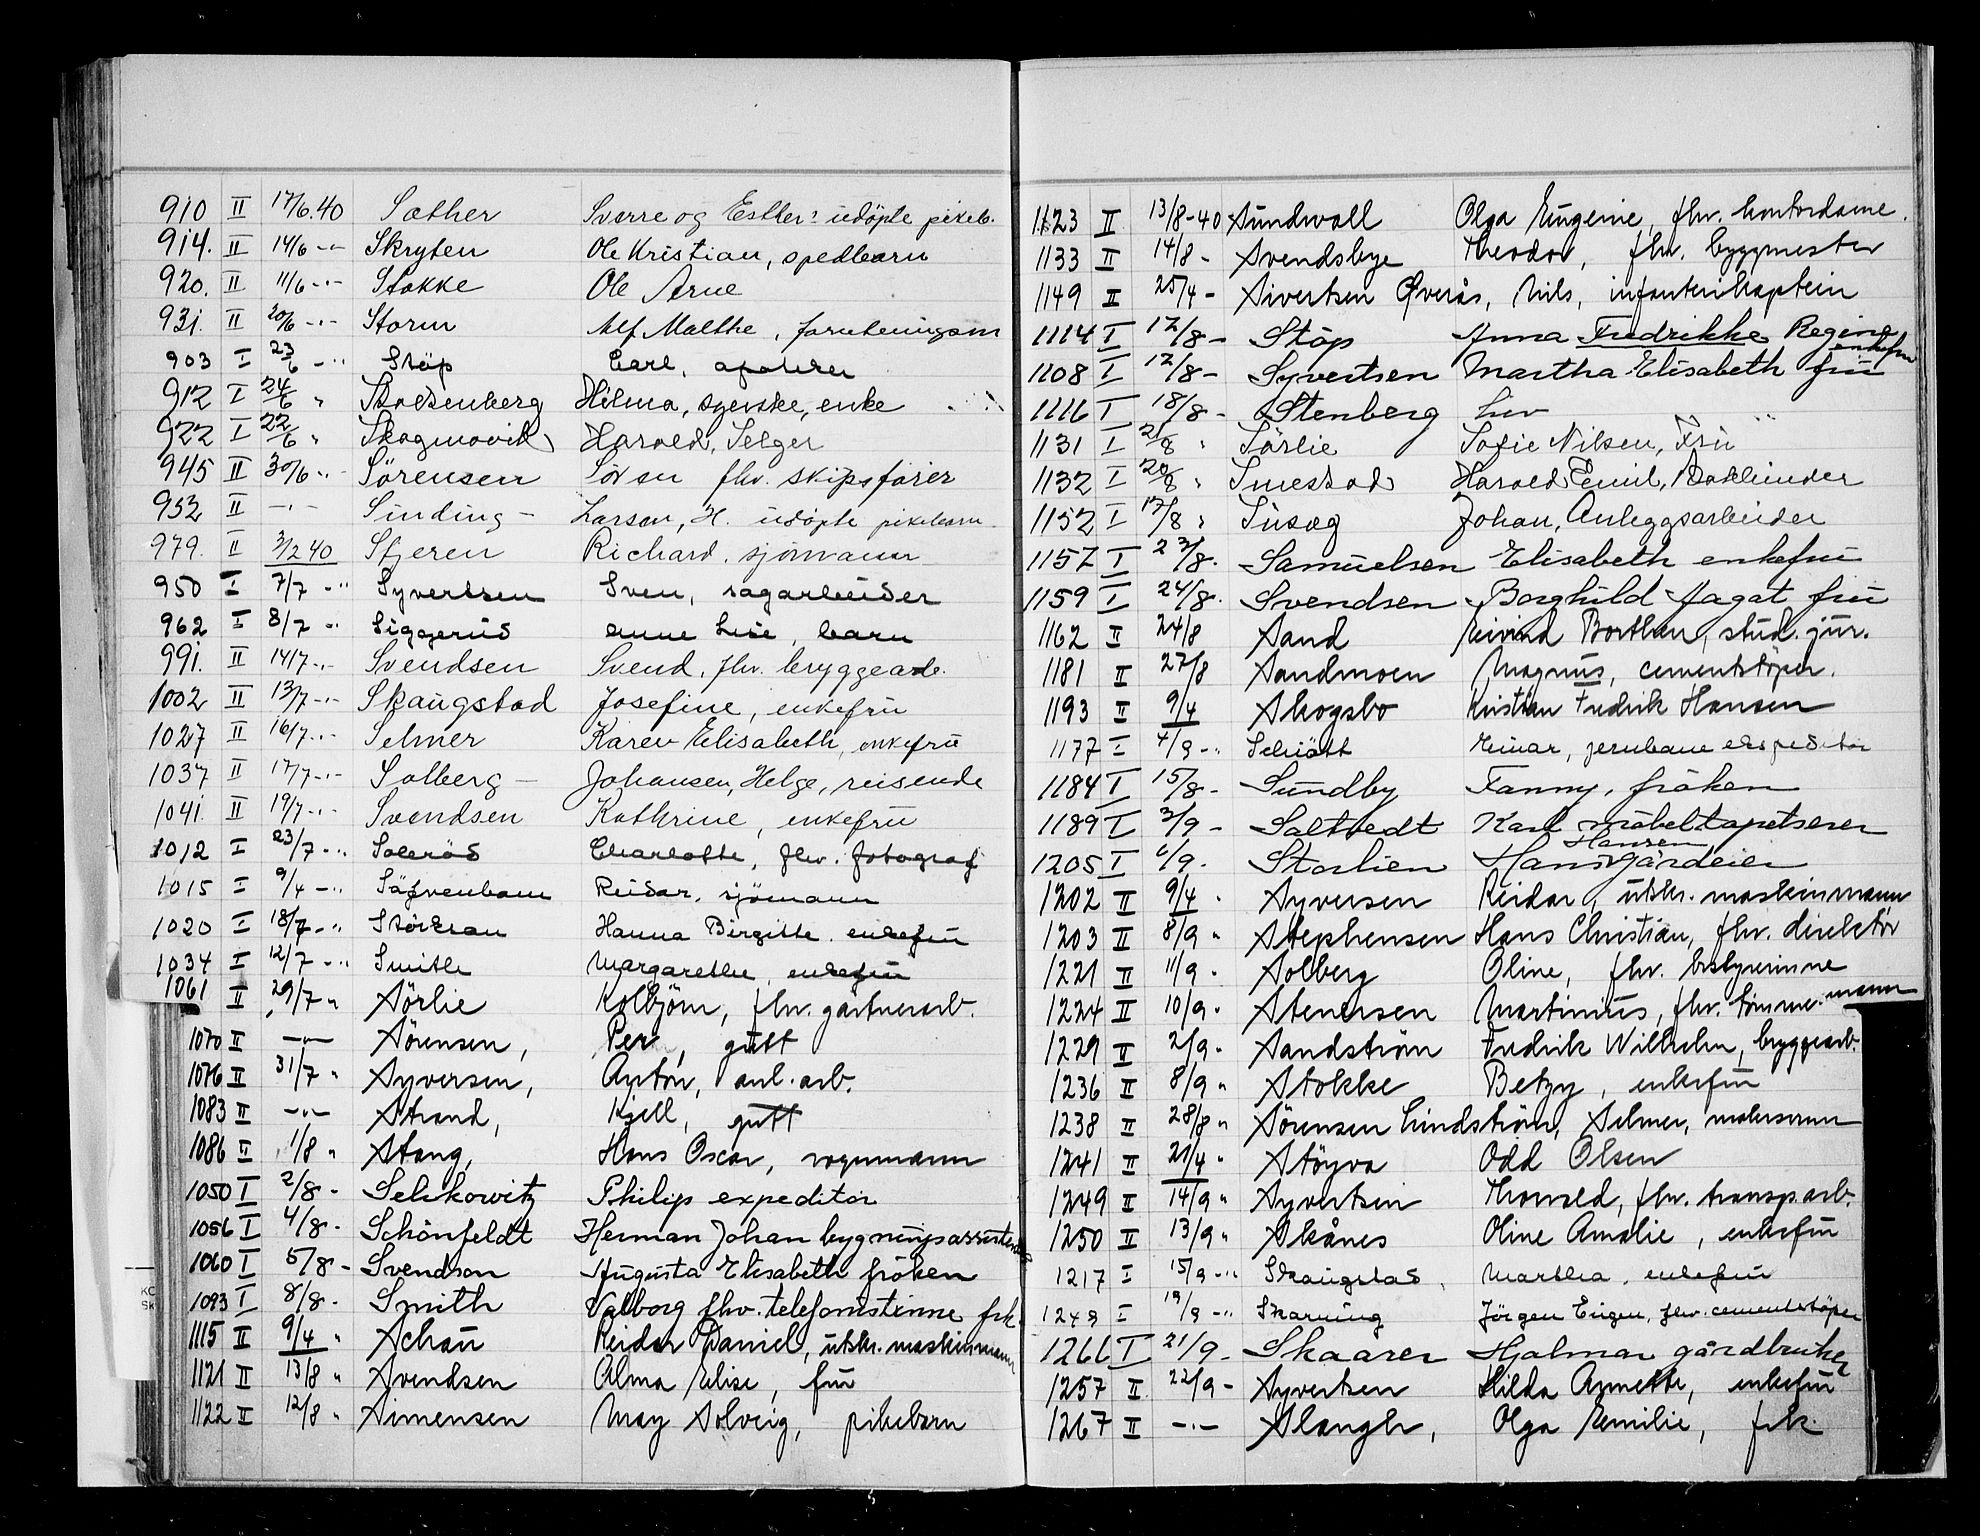 910 II 17/6.40 Sæther Sverre og Esther: udöpte pikeb.
914. II 14/6 -"- Skryten Ole Kristian, spedbarn
920. II 11/6 -"- Stokke Ole Arne
931. II 20/6 -"- Storm Alf Malthe, forretningsm
903 I 23/6 -"- Stöp Carl, apoteker
912 I 24/6 " Stoltenberg Hilma, syerske, enke
922 I 22/6 " Skogmovik Harald, Selger
945 II 30/6 -"- Sörensen Sören fhv. skipsförer
952 II -"- Sinding - Larsen, H. udöpte pikebarn
979. II 3/2 40 Stjeren Richard. sjömann
950 I 7/7 -"- Syvertsen Sven, sagarbeider
962 I 8/7 -"- Siggerud Anne Lise, barn
991. II 14/7 -"- Svendsen Svend, fhv. bryggearb.
1002 II 13/7 -"- Skaugstad Josefine, enkefru
1027 II 16/7 -"- Selmer Karen Elisabeth, enkefru
1037 II 17/7 -"- Solberg - Johansen, Helge, reisende
1041. II 19/7 -"- Svendsen Kathrine, enkefru
1012 I 23/7 -"- Solerös Charlotte, fhv. fotograf
1015 I 9/4 -"- Säfvenbom Reidar, sjömann
1020 I 18/7 -"- Störkran Hanna Birgitte. enkefru
1034 I 12/7 -"- Smith Margarethe, enkefru
1061 II 29/7 " Sörlie Kolbjörn, fhv. gartnerarb.
1070 II -"- Sörensen, Per, gutt
1076 II 31/7 " Syversen, Anton, anl. arb.
1083 II -"- Strand, Kjell, gutt
1086 II 1/8 " Stang, Hans Oscar, vognmann
1050 I 2/8 - Selikowitz Philip expeditör
1056 I 4/8 - Schönfeldt Herman Johan bygningsassistent
1060 I 5/8 - Svendson Augusta Elisabeth fröken
1093 I 8/8 - Smith Valborg fhv. telefonistinne frk.
1115 II 9/4 " Schau Reidar Daniel, utskr. maskinmann
1121 II 13/8 " Svendsen Alma Elise, fru
1122 II 12/8 " Simensen May Solveig, pikebarn
1123 II 13/8-40 Sundvall Olga Eugenie, fhv. kontordame.
1133 II 14/8 - Svendsbye Theodor, fhv. byggmester
1149 II 25/4 - Sivertsen Överås, Nils, infanterikaptein
1114 I 12/8 - Stöp Anna Fredrikke Regine enkefru
1108 I 12/8 - Syvertsen Martha Elisabeth fru
1116 I 18/8 - Stenberg Liv
1131 I 21/8 " Sörlie Sofie Nilsen, Fru
1132 I 20/8 " Smestad Harald Emil, Bokbinder
1152 I 17/8 " Susæg Johan, Anleggsarbeider
1157 I 23/8. Samuelsen Elisabeth enkefru
1159 I 24/8. Svendsen Borghild Agat fru
1162 II 24/8 Sand Eivind Borthen, stud. jur.
1181 II 27/8 Sandmoen Magnus, cementstöper.
1193 II 9/4 Skogsbo Kristian Fredrik Hansen
1177 I 4/9 -"- Schiött Einar, jernbane ekspeditör
1184 I 15/8 - Sundby Fanny, fröken
1189 I 3/9 - Saltvedt Karl möbeltapetserer
1205 I 6/9. Storlien Hans Hansen gårdeier
1202 II 9/4 " Syversen Reidar, utskr. maskinmann
1203 II 8/9 " Stephensen Hans Christian, fhv. direktör
1221 II 11/9 " Solberg Oline, fhv. bestyrerinne
1224 II 10/9 " Stenersen Martinius, fhv. tömmermann
1229 II 2/9 " Sandström Fredrik Wilhelm, bryggearb.
1236 II 8/9 " Stokke Betzy, enkefru
1238 II 28/8 " Sörensen Lindström, Selmer, malersvenn
1241 II 21/4 " Stöyva Odd Olsen
1249 II 14/9 " Syvertsen Thorvald, fhv. transp. arb.
1250 II 13/9 " Skånes Oline Amalie, enkefru
1217 I 15/9 -"- Skaugstad, Martha, enkefru
1248 I 19/9 -"- Skarning Jörgen Eugen, fhv. cementstöper
1266 I 21/9 - Skaarer Hjalmar gårdbruker
1257 II 22/9 - Syvertsen Hilda Annette, enkefru
1267 II -"- Slangh, Olga Emilie, frk.